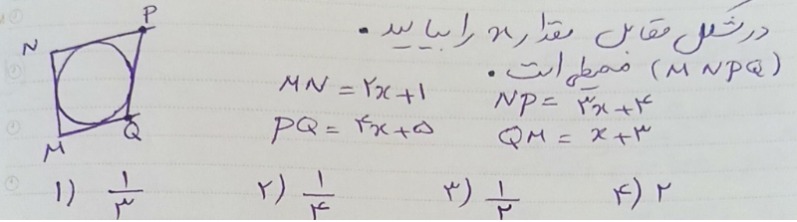 در شکل مقابل مقدار x را بیابید.
(MNPQ) محیطی است.
P
N
Q
M
MN = ۲x+۱
NP = ۳x+۴
PQ = ۴x+۵
QM = x+۳
۱) ۱/۳
۲) ۱/۴
۳) ۱/۲
۴) ۲